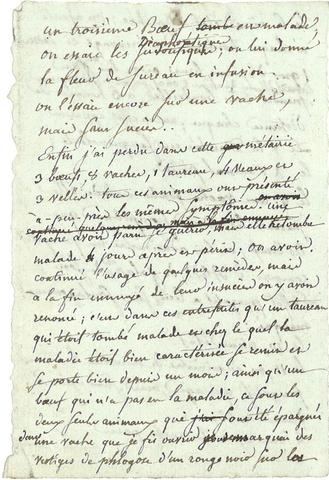 un troisième Bœuf tombe en malade,
on essaie les sudorifique; on lui donne
Diaphorétique
la fleur de sureau en infusion.
on l'essaie encore sur une vache,
mais sans succès..
Enfin j'ai perdu dans cette métairie
3 bœufs 8 vaches, 1 taureau, 4 veaux en
3 velles. tous ces animaux ont présenté
a-peu-près les même symptome. une
vache avoit paru se guérir, mais elle retombe
malade 4 jour après en périe; on avoit
continué l'usage de quelques remèdes, mais
à la fin ennuyé de leur insuccès on y avoit
renoncé; c'est dans ces entrefaites qu'un taureau
qui étoit tombé malade en chez le quel la
maladie étoit bien caractérisée se remis en
se porte bien depuis un mois; ainsi qu'un
bœuf qui n'a pas eu la maladie, ce sont les
deux seuls animaux que j'ai sont été épargnés
dans une vache que je fis ouvrir marquai des
vestiges de phlogose d'un rouge noir sur les